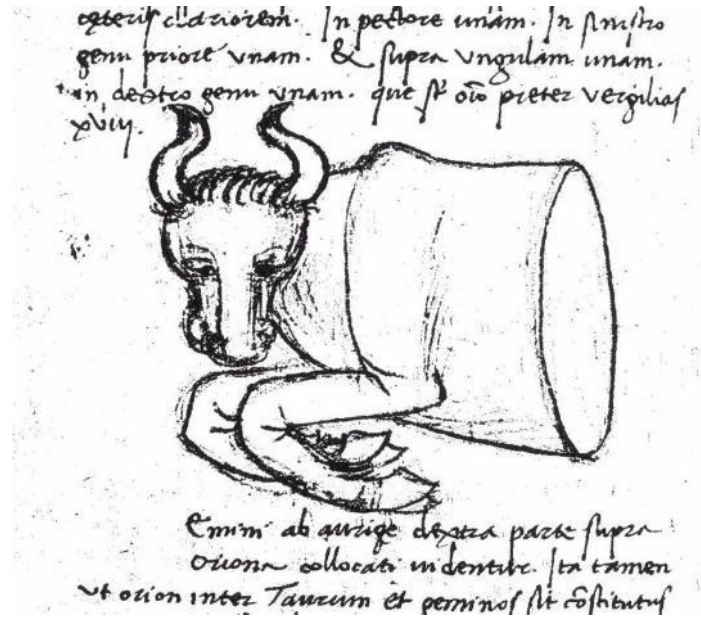 ceteris clariorem. In pectore unam. In sinistro
genu priore vnam. & supra vngulam unam.
in dextro genu vnam. que st̄ oīo preter vergilias
xviij.
Emini ab aurige dextra parte supra
Oriona collocati uidentur. Ita tamen
vt orion inter Taurum et geminos sit cōstitutus